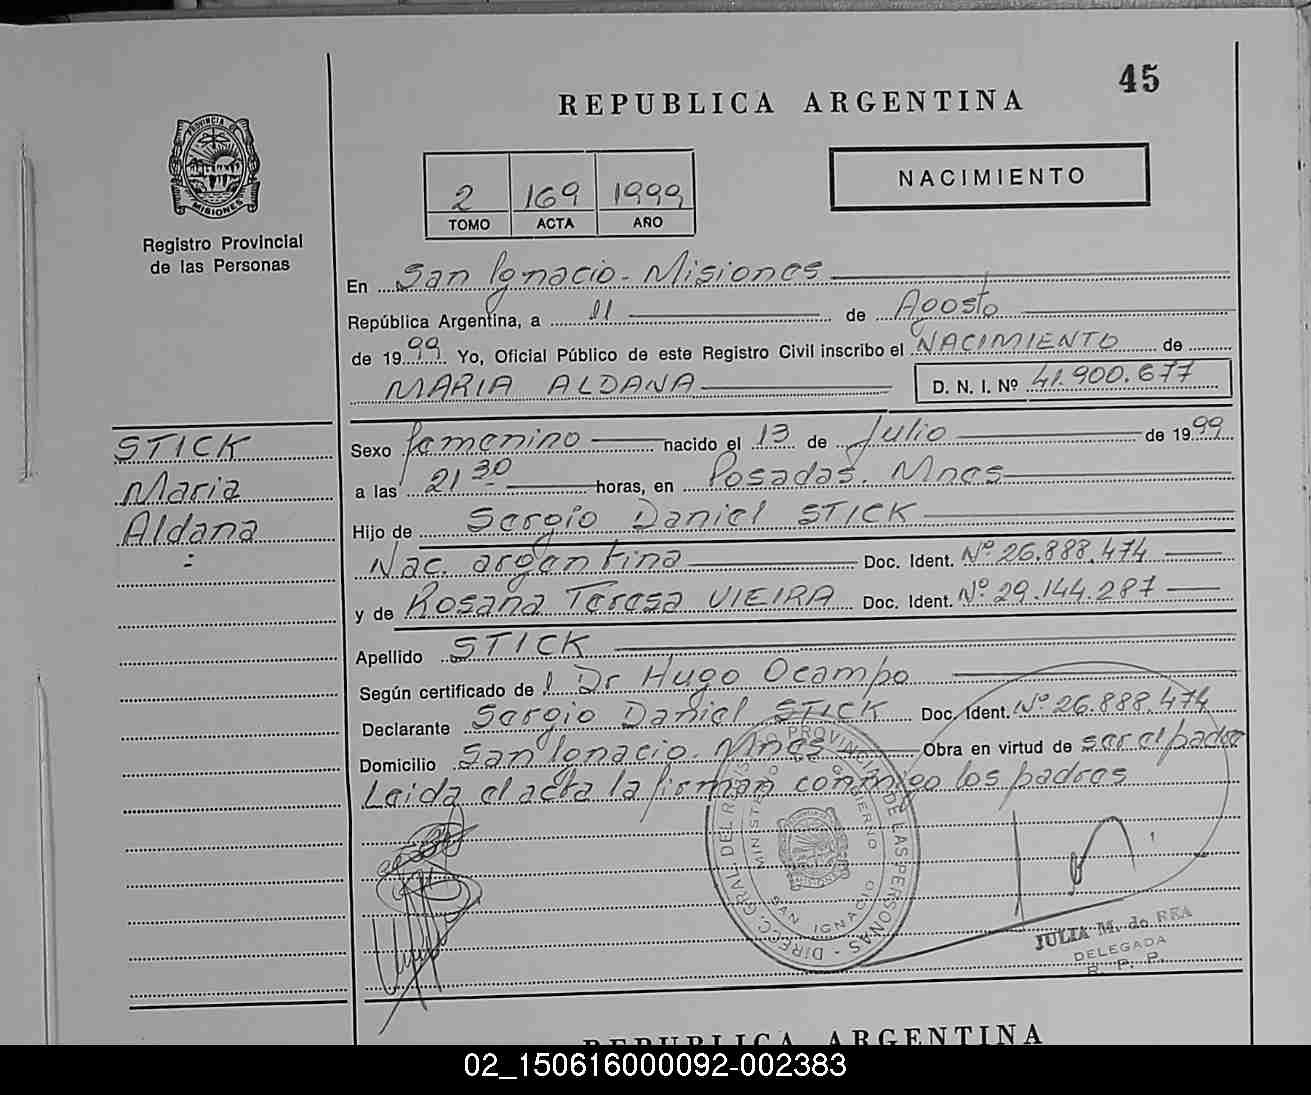 45
REPUBLICA ARGENTINA
PROVINCIA DE
MISIONES
Registro Provincial
de las Personas
2 169 1999
TOMO ACTA AÑO
NACIMIENTO
En San Ignacio - Misiones
República Argentina, a 11 de Agosto
de 1999 Yo, Oficial Público de este Registro Civil inscribo el NACIMIENTO de
MARIA ALDANA D. N. I. Nº 41.900.677
STICK
Maria
Aldana
Sexo femenino nacido el 13 de Julio de 1999
a las 21 30 horas, en Posadas. Mnes
Hijo de Sergio Daniel STICK
Nac. argentina Doc. Ident. Nº 26.888.474
y de Rosana Teresa VIEIRA Doc. Ident. Nº 29.144.287
Apellido STICK
Según certificado de l Dr Hugo Ocampo
Declarante Sergio Daniel STICK Doc. Ident. Nº 26.888.474
Domicilio San Ignacio - Mnes Obra en virtud de ser el padre
Leida el acta la firman conmigo los padres
DIRECC. GRAL. DEL REGISTRO PROVINCIAL DE LAS PERSONAS
MINISTERIO DE GOBIERNO
SAN IGNACIO
JULIA M. de REA
DELEGADA
R. P. P.
REPUBLICA ARGENTINA
02_150616000092-002383